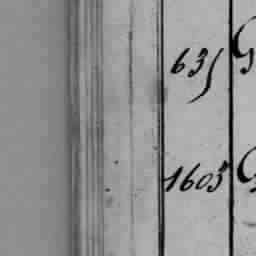 635
1605